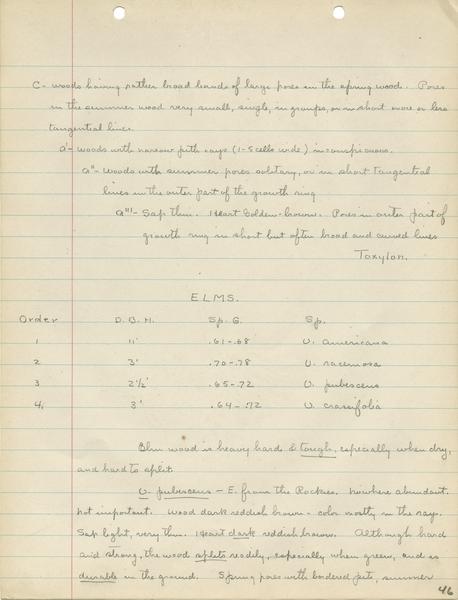 C- woods having rather broad bands of large pores in the spring wood. Pores
in the summer wood very small, single, in groups, or in short more or less
tangential lines.
a'- woods with narrow pith rays (1-5 cells wide) inconspicuous.
a"- Woods with summer pores solitary, or in short tangential
lines in the outer part of the growth ring
a"'- Sap thin. Heart Golden-brown. Pores in outer part of
growth ring in short but often broad and curved lines
Toxylon.
ELMS.
Order D.B.H. Sp. G. Sp.
1 11' .61-.68 U. americana
2 3' .70-.78 U. racemosa
3 2½' .65-.72 U. pubescens
4. 3' .64-.72 U. crassifolia
Elm wood is heavy hard & tough, especially when dry,
and hard to split.
U. pubescens - E. from the Rockies. nowhere abundant.
not important. Wood dark reddish brown - color mostly in the rays.
Sap light, very thin. Heart dark reddish brown. Although hard
and strong, the wood splits readily, especially when green, and is
durable in the ground. Spring pores with bordered pits, summer
46